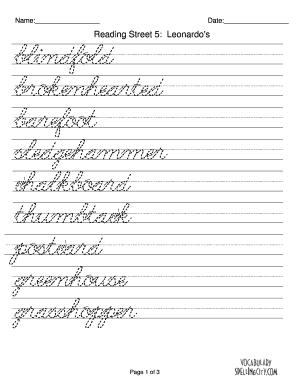 Name: Date:
Reading Street 5: Leonardo's
blindfold
brokenhearted
barefoot
sledgehammer
chalkboard
thumbtack
postcard
greenhouse
grasshopper
VOCABULARY
SPELLINGCITY.COM
Page 1 of 3